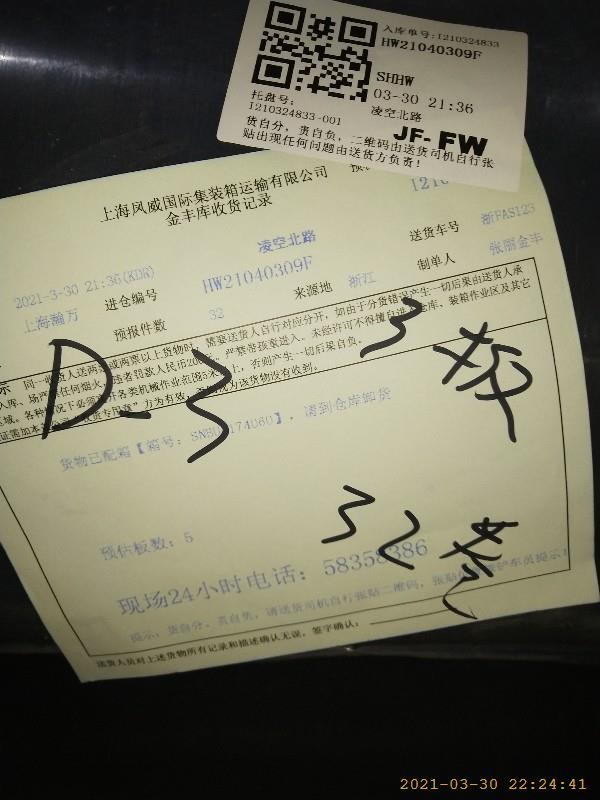 入库单号:I210324833
HW21040309F
SHHW
03-30 21:36
托盘号:
凌空北路
I210324833-001
JF-FW
货自分，责自负，二维码由送货司机自行张
贴出现任何问题由送货方负责！
上海风威国际集装箱运输有限公司
金丰库收货记录
I210
凌空北路
2021-3-30 21:36(KDR)
进仓编号
HW21040309F
送货车号
浙FAS123
上海瀚万
预报件数
32
来源地
浙江
制单人
张丽金丰
示 同一收货人送两票或两票以上货物时，需要送货人自行对应分开，如由于分货错误产生一切后果由送货人承
严禁带孩童进入。未经许可不得擅自进入仓库、装箱作业区及其它
区域。各种情况下必须离开各类机械作业范围5米以上，否则产生一切后果自负。
D-3
3板
货物已配箱【箱号: 174060】，请到仓库卸货
32卷
预估板数: 5
现场24小时电话: 58358386
提示、货自分、责自负，请送货司机自行张贴二维码，
送货人员对上述货物所有记录和描述确认无误，签字确认:
2021-03-30 22:24:41